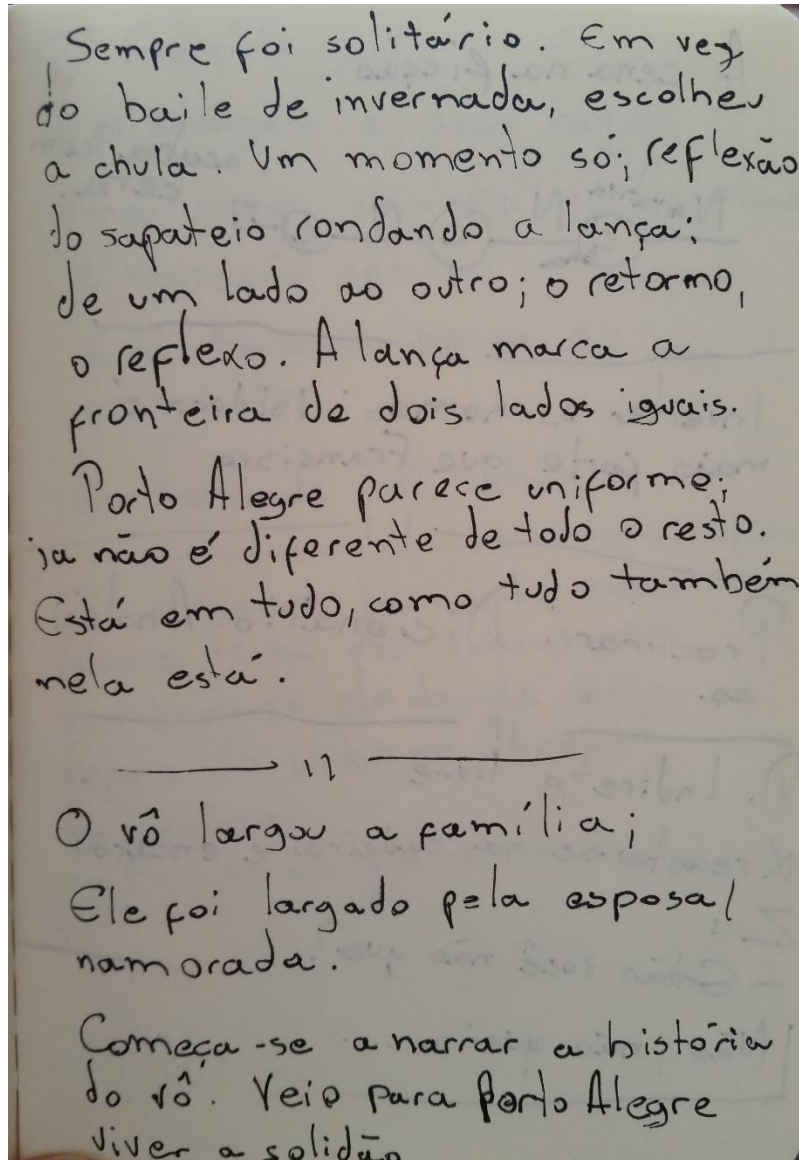 Sempre foi solitário. Em vez
do baile de invernada, escolheu
a chula. Um momento só; reflexão
do sapateio rondando a lança:
de um lado ao outro; o retorno,
o reflexo. A lança marca a
fronteira de dois lados iguais.
Porto Alegre parece uniforme;
ja não é diferente de todo o resto.
Está em tudo, como tudo também
nela está.
O vô largou a família;
Ele foi largado pela esposa/
namorada.
Começa-se a narrar a história
do vô. Veio para Porto Alegre
viver a solidão